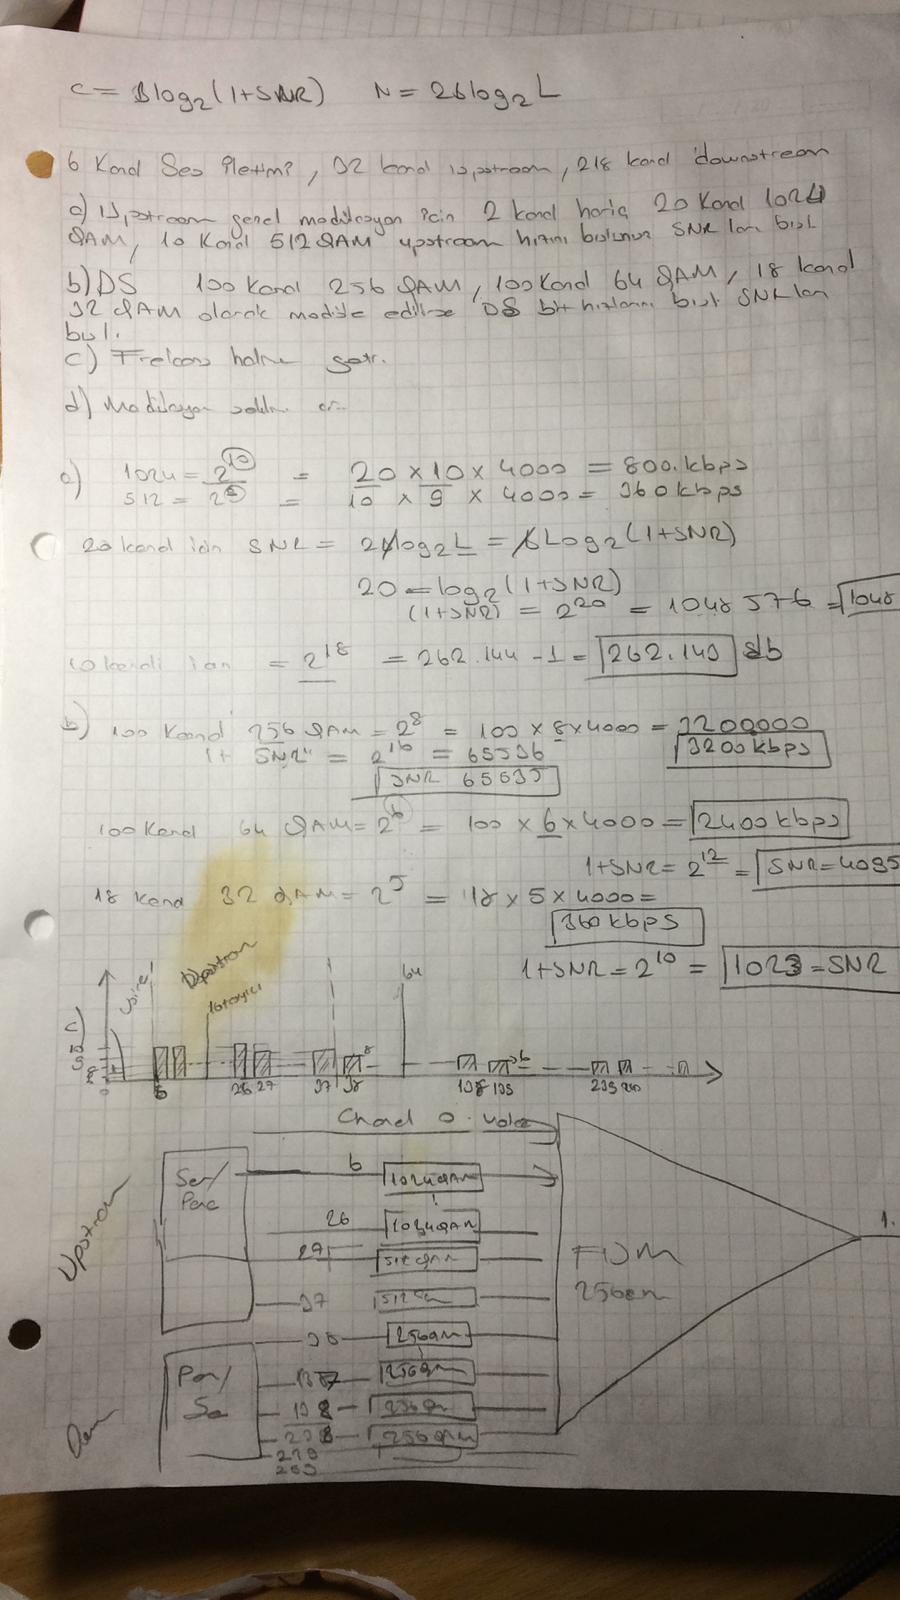 C = B log₂(1+SNR) N = 2B log₂ L
6 Kanal Ses iletimi, 32 kanal upstream, 218 kanal downstream
a) Upstream genel modilasyon için 2 kanal hariç 20 Kanal 1024
QAM, 10 Kanal 512 QAM upstream hızını bulunuz SNR ları bul
b) DS 100 Kanal 256 QAM, 100 Kanal 64 QAM, 18 kanal
32 QAM olarak modüle edilirse DS bit hızlarını bul SNR ları
bul.
c) Frekans
d) Modilasyon
a) 1024 = 2^10 = 20 x 10 x 4000 = 800.kbps
512 = 2^9 = 10 x 9 x 4000 = 360 kbps
20 kanal için SNR = 2B log₂ L = B Log₂(1+SNR)
20 = log₂(1+SNR)
(1+SNR) = 2^20 = 1048576 = 1048
10 kanal için = 2^18 = 262.144 - 1 = 262.143 db
b) 100 Kanal 256 QAM = 2^8 = 100 x 8 x 4000 = 3200000
3200 kbps
1+ SNR = 2^16 = 65536
SNR 65535
100 Kanal 64 QAM = 2^6 = 100 x 6 x 4000 = 2400 kbps
1+SNR = 2^12 = SNR = 4095
18 Kanal 32 QAM = 2^5 = 18 x 5 x 4000 =
360 kbps
1+SNR = 2^10 = 1023 = SNR
Voice
Upstream
6 26 27 37 38 138 139 239 240
Chanel 0 voice
Upstream
Ser/
Par
6 1024 QAM
26 1024 QAM
27 512 QAM
37 512
38 256 QAM
137 256 QAM
138 256
238 256 QAM
239
Par/
Se
FDM
256
1.